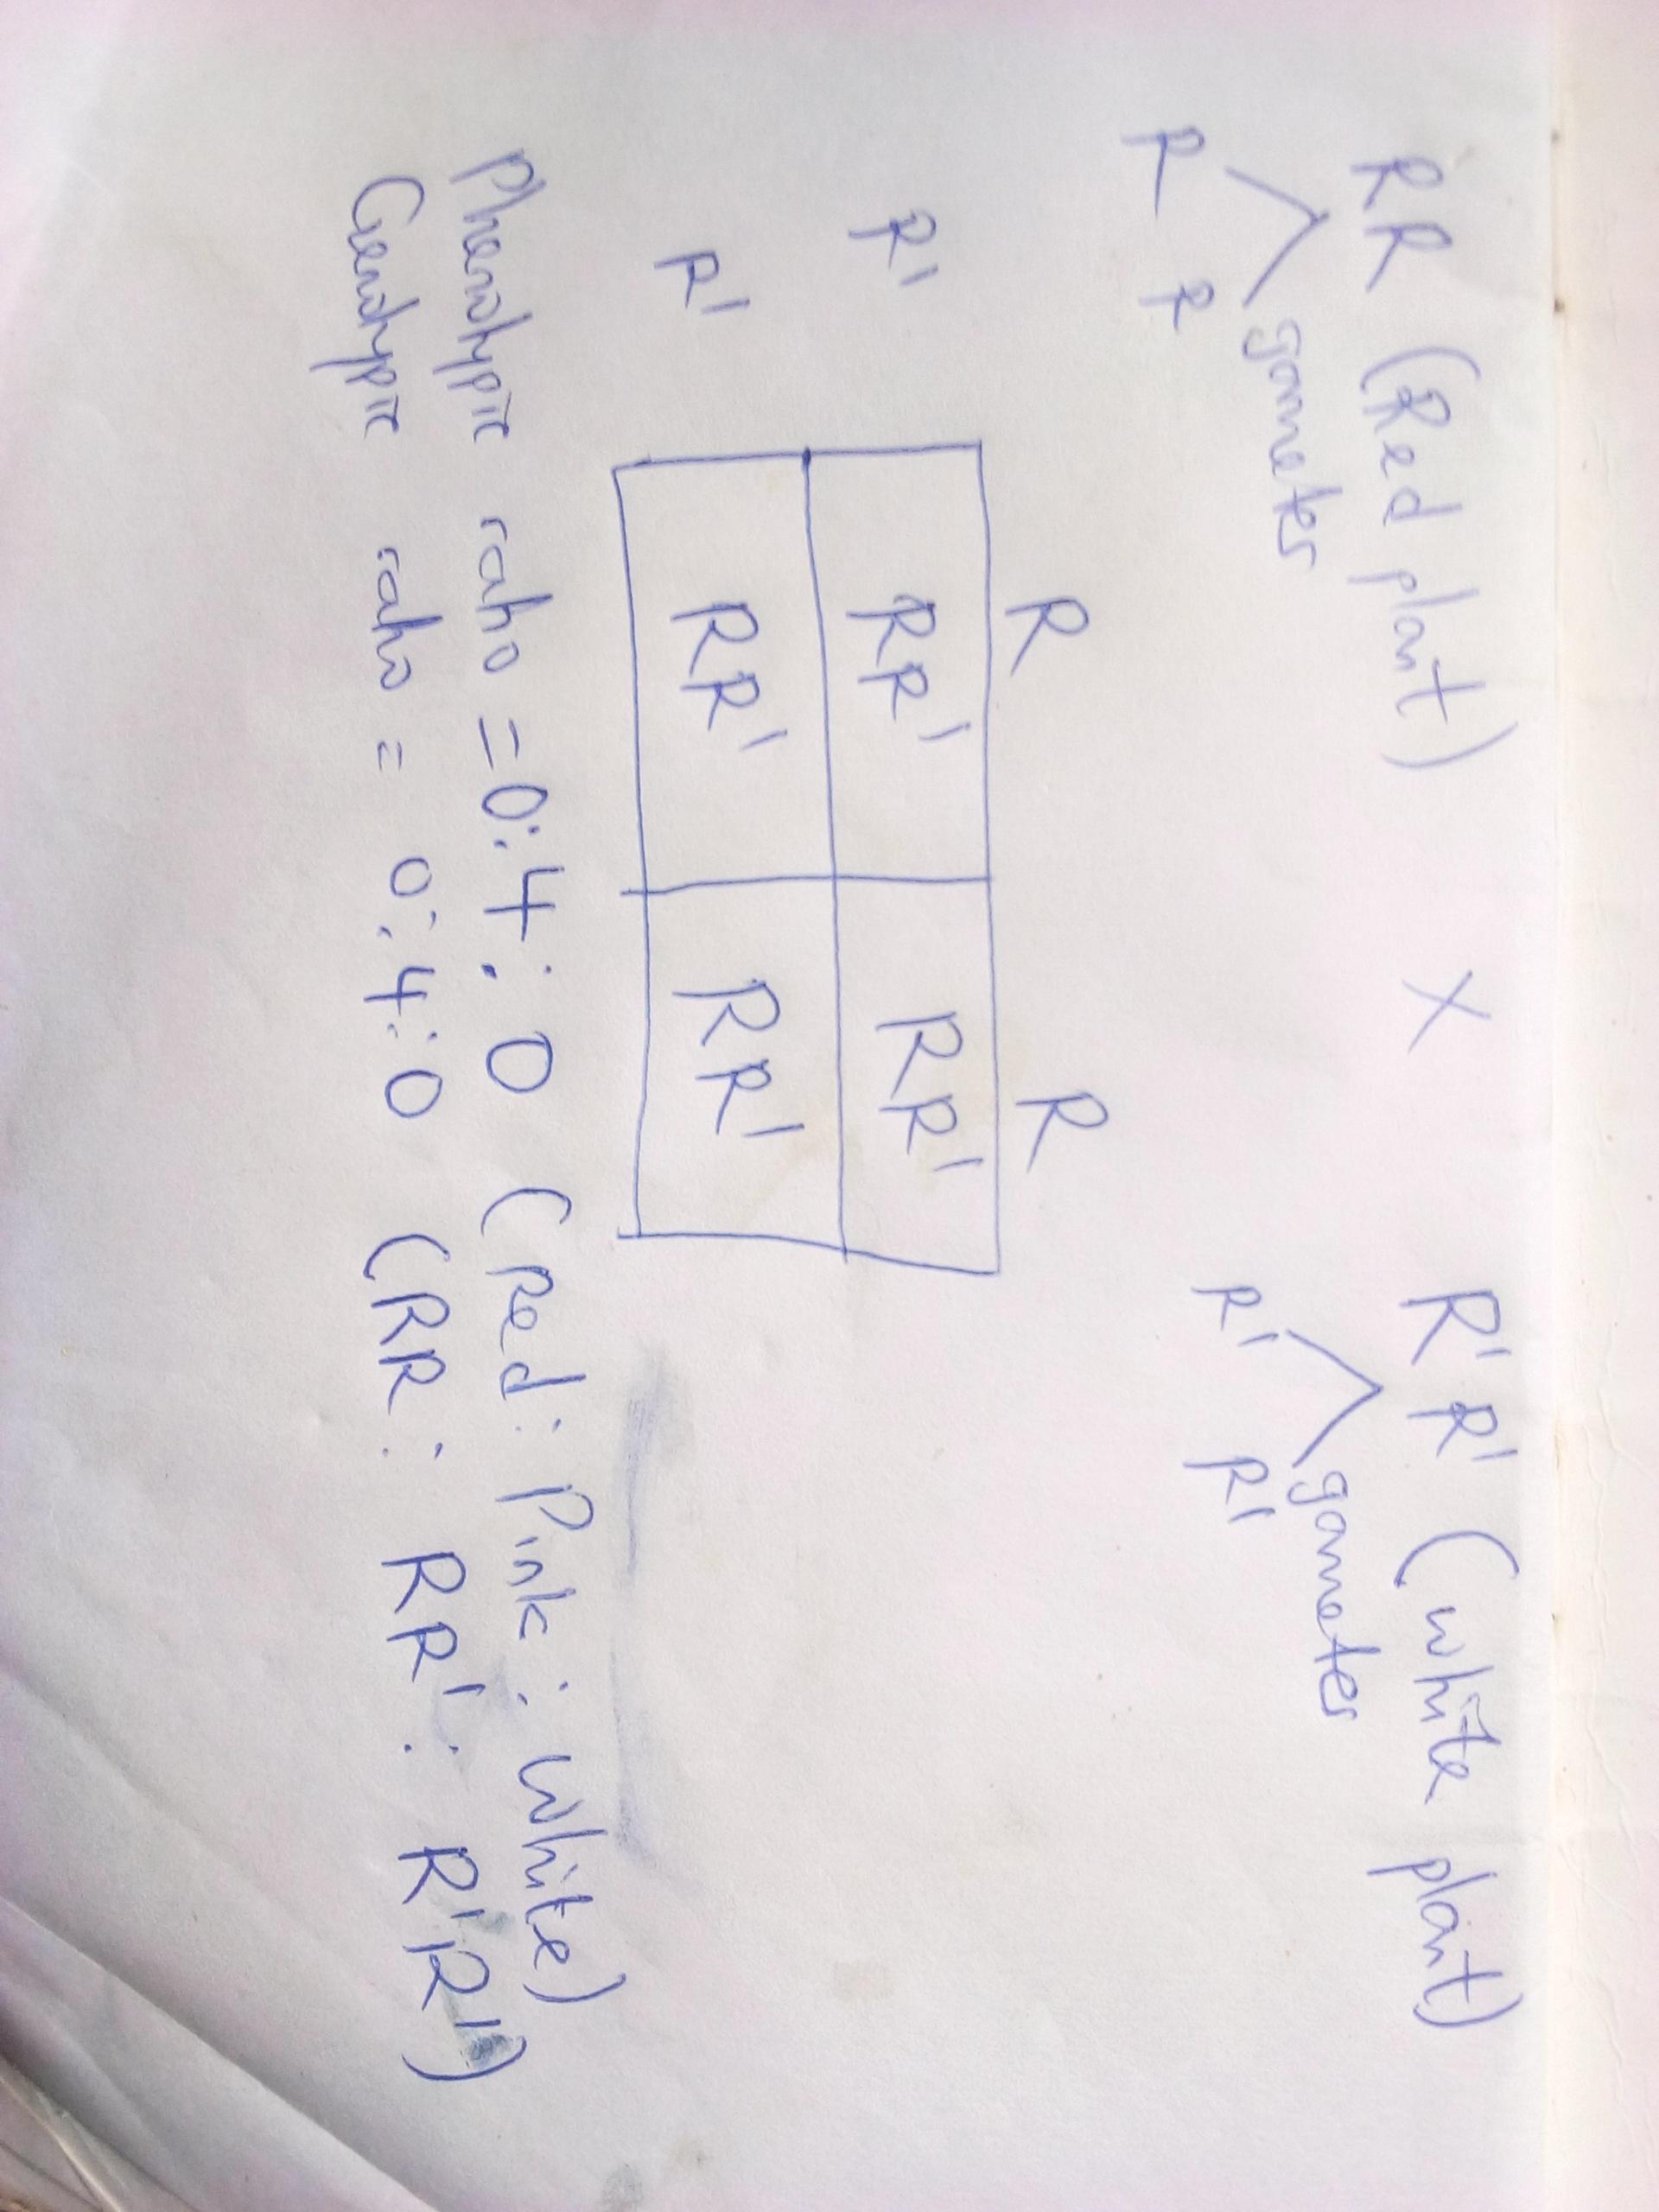 RR (Red plant) X R'R' (white plant)
gametes gametes
R R R' R'
R R
R' RR' RR'
R' RR' RR'
Phenotypic ratio = 0:4:0 (Red: Pink: white)
Genotypic ratio = 0:4:0 (RR: RR': R'R')